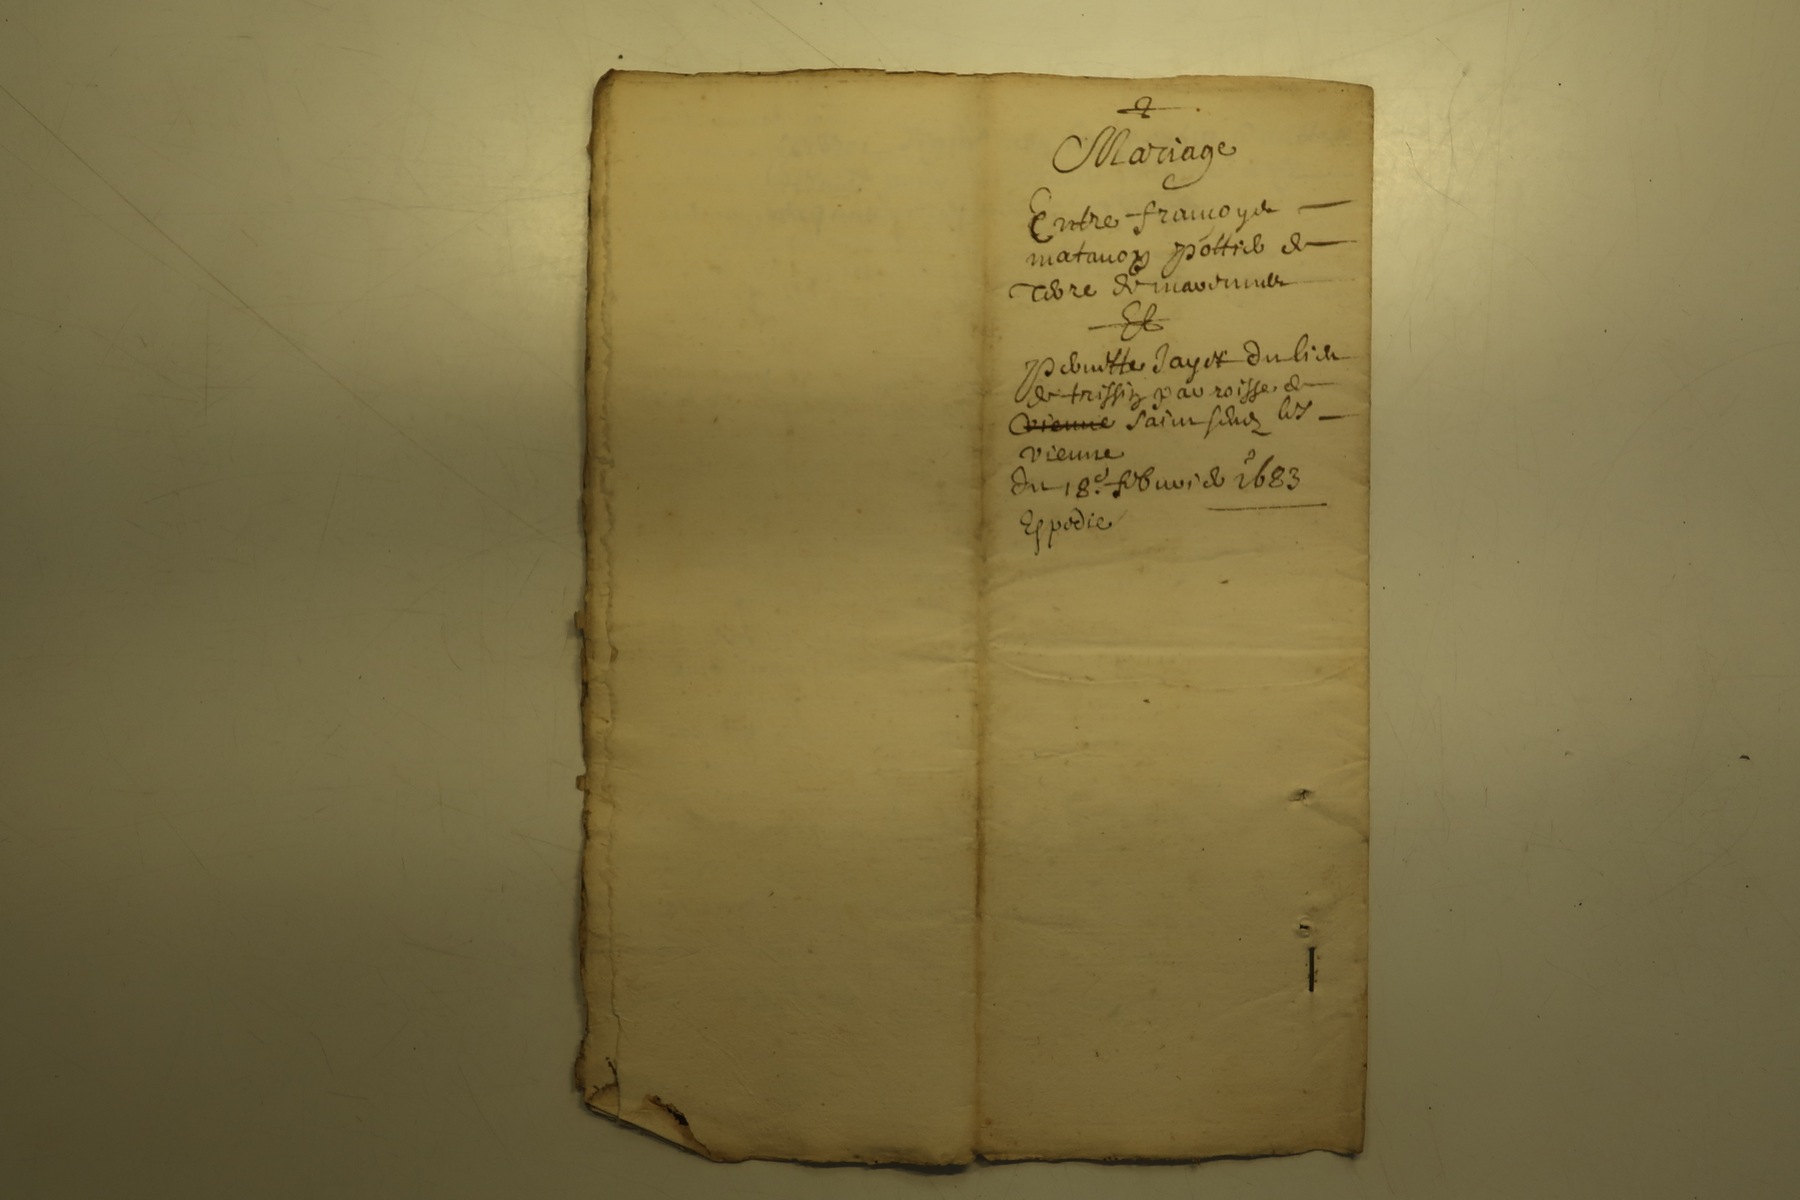 Mariage
Entre françoys
matauon pottier de
terre de marennes
Et
pernette Jayet du lieu
de trissin parroisse de
vienne saint les
vienne
du 18e. febvrier 1683
Expedie